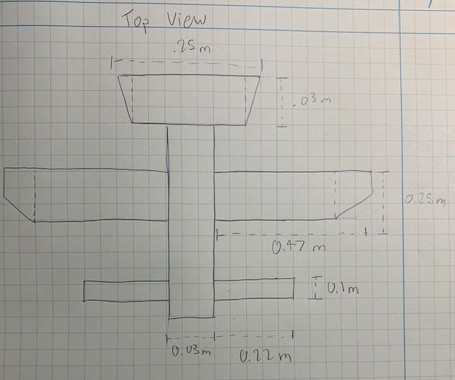 Top View
.25m
.03m
0.25m
0.47 m
0.1m
0.03m
0.22 m